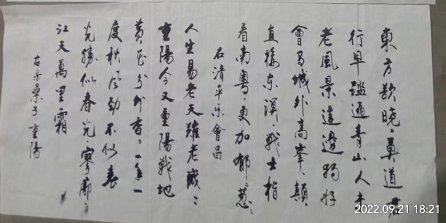 東方欲曉莫道
行早踏遍青山人未
老風景這邊獨好
會昌城外高峯顛
直接東溟戰士指
看南粵更加鬱蔥〻
右清平樂會昌
人生易老天難老歲〻
重陽今又重陽戰地
黃花分外香一年一
度秋風勁不似春
光勝似春光寥廓
江天萬里霜
右采桑子重陽
2022.09.21 18:21